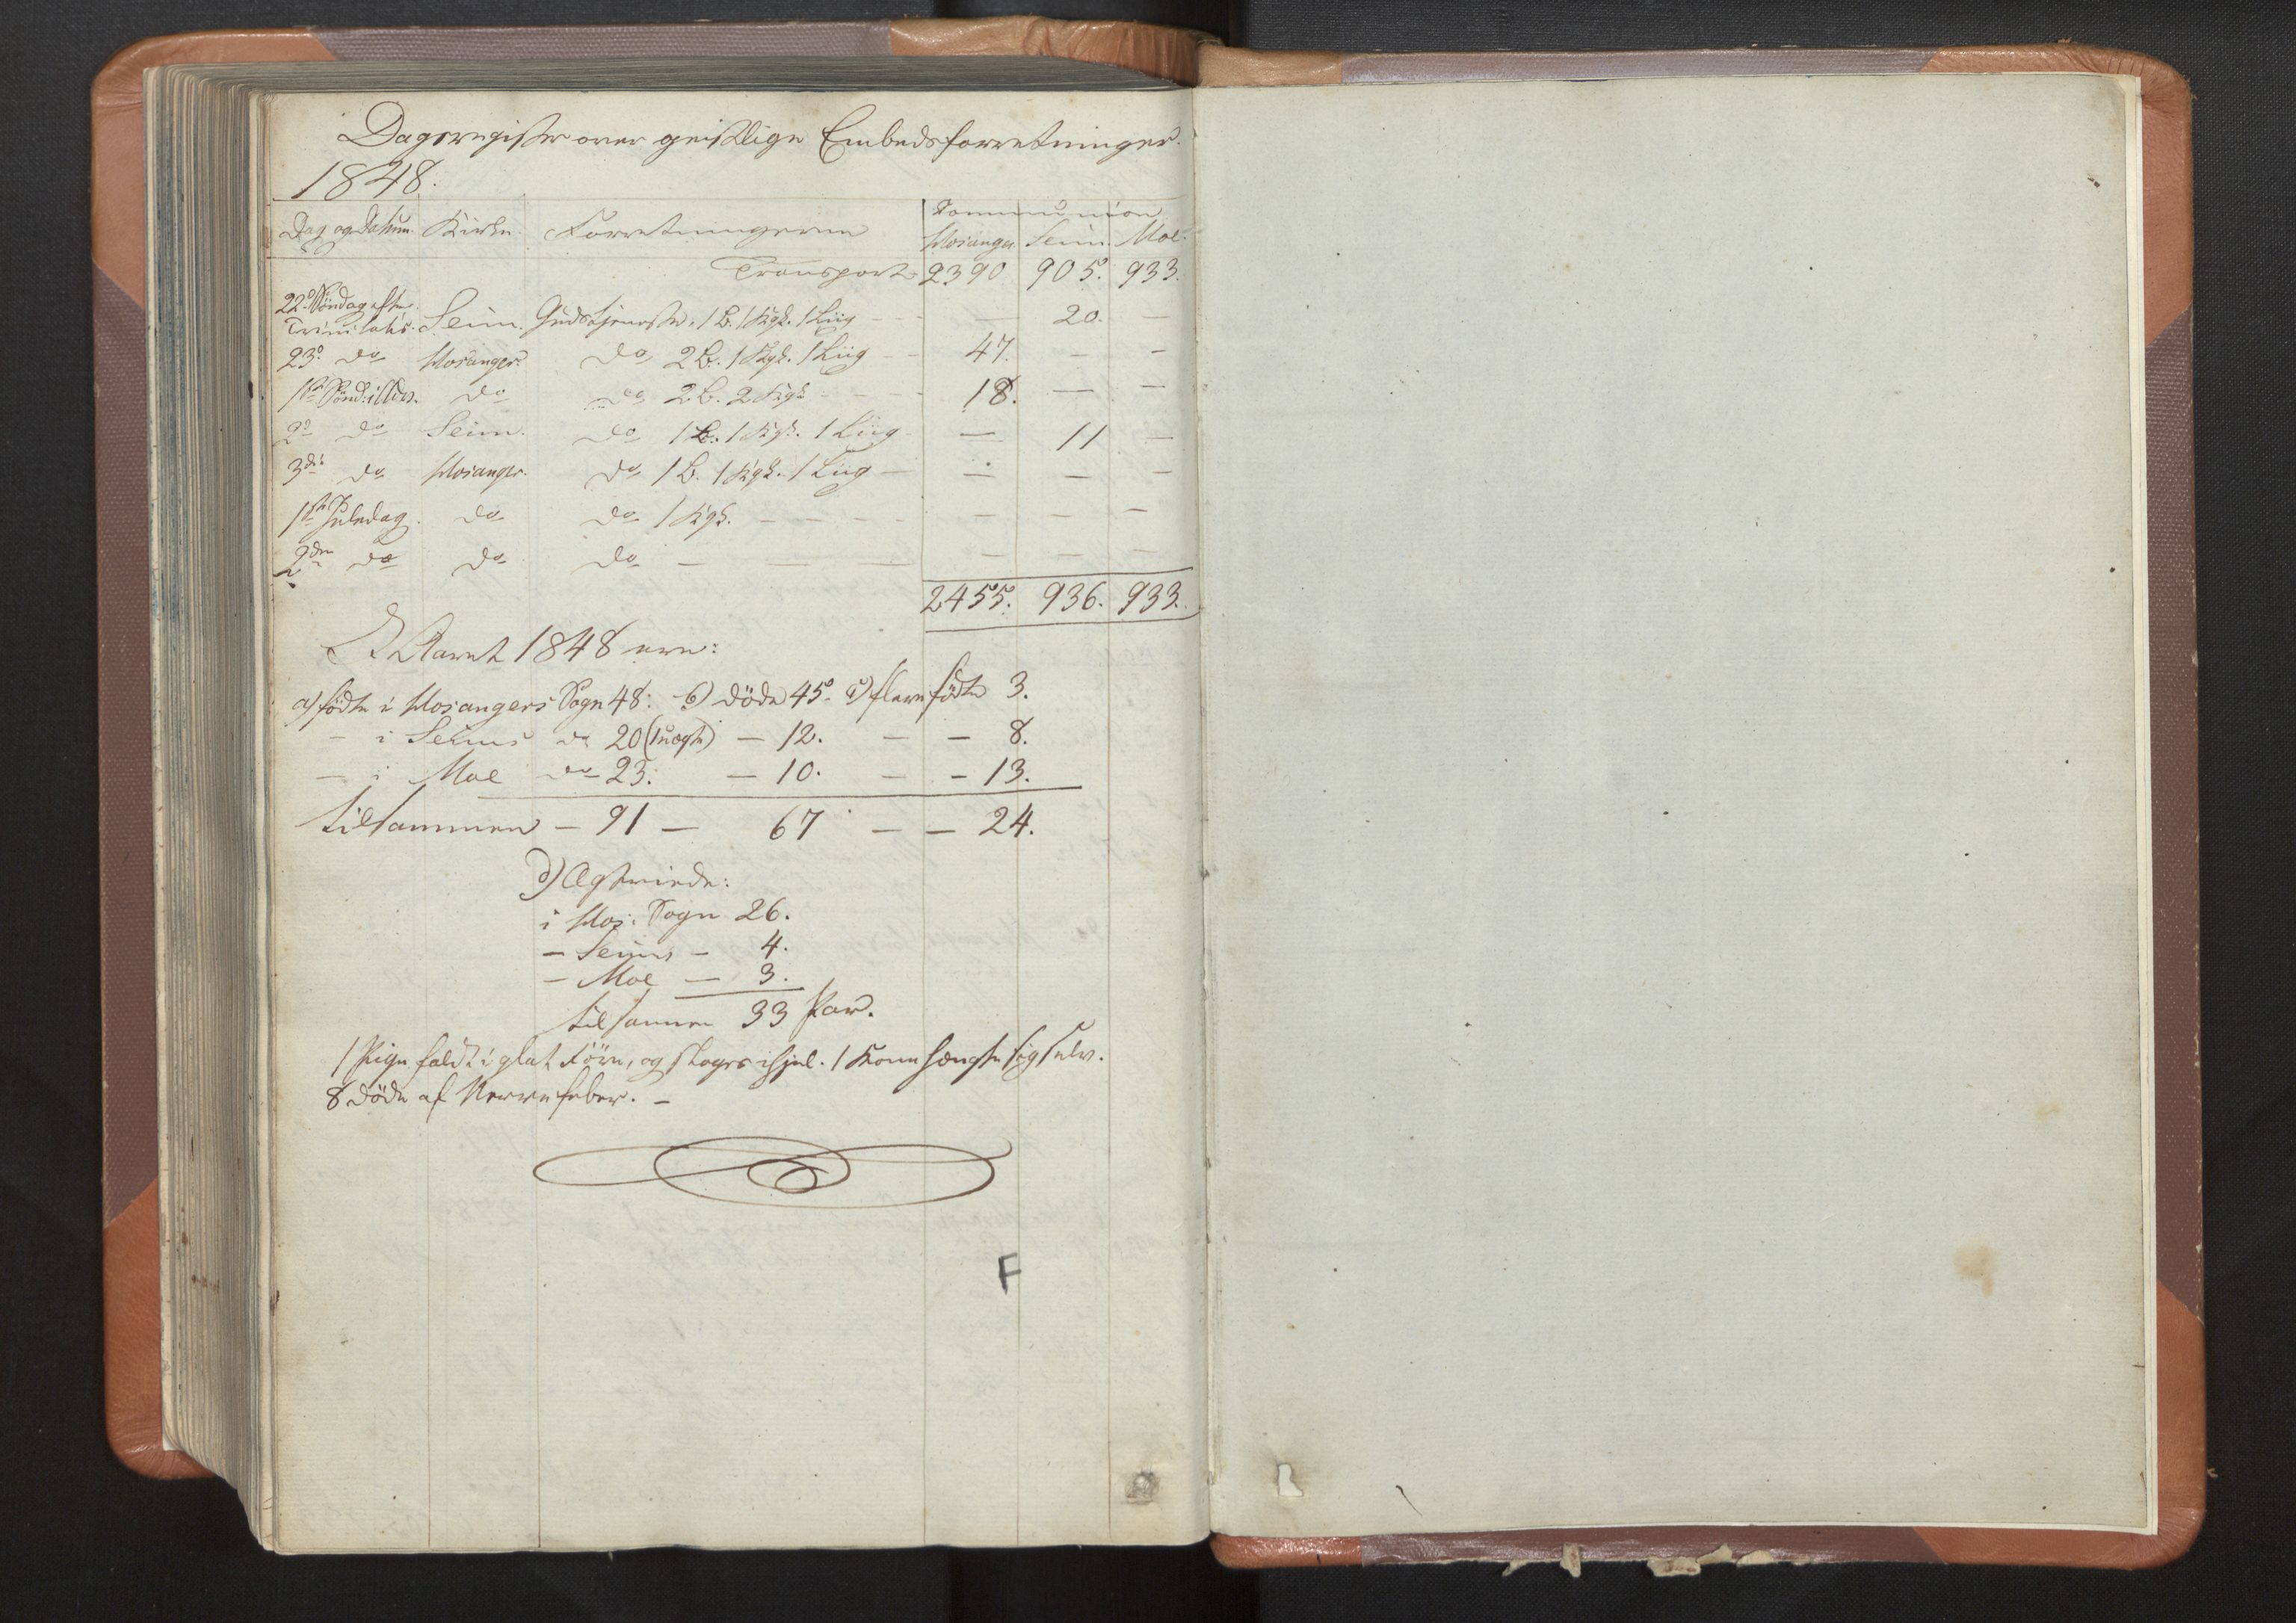 Dagsregister over geistlige Embedsforretninger.
1848.
Dag og Datum. Kirke. Forretningerne Communion
Hosanger Seim. Moe.
Transport 2390 905. 933.
22de Söndag efter
Trinitatis. Seim. Gudstjeneste. 1 B. 1 Kgk. 1 Liig — 20. —
23de do Hosanger. do 2 B. 1 Kgk. 1 Liig 47. — —
1ste Sönd. i Adv. do do 2 B. 2 Kgk 18. — —
2den do Seim. do 1 B. 1 Kgk. 1 Liig — 11 —
3die do Hosanger. do 1 B. 1 Kgk. 1 Liig — — —
1ste Juledag. do do 1 Kgk. — — —
2den do do do — — —
2455. 936. 933.
I Aaret 1848 ere:
a) fødte i Hosangers Sogn 48: b) döde 45. c) flere födte 3.
— i Seims do 20 (1 uægte) — 12. — — 8.
— i Moe do 23. — 10. — — 13.
tilsammen — 91 — 67 — — 24.
d) Ægteviede:
i Hos. Sogn 26.
— Seims — 4.
— Moe — 3.
tilsammen 33 Par.
1 Pige faldt i glat Före, og sloges ihjel. 1 Kone hængte sig selv.
8 döde af Nervefeber. —
F